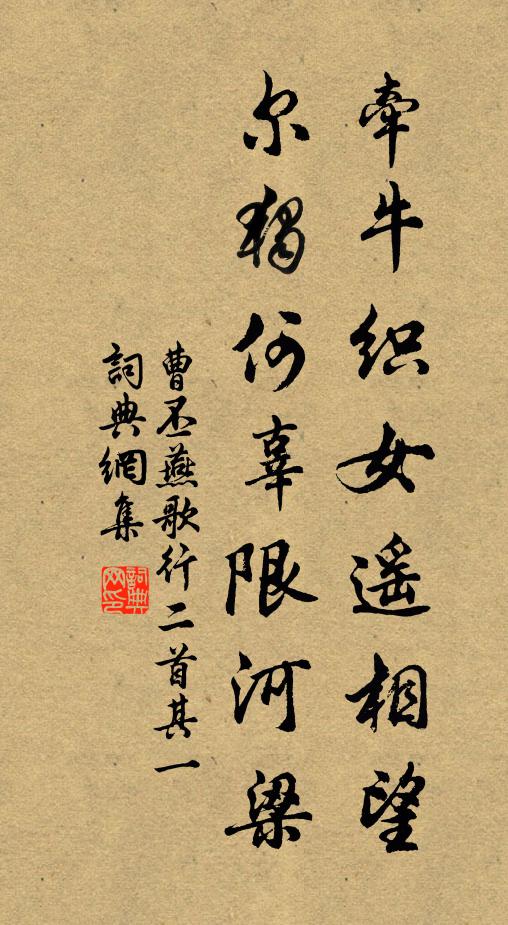 牽牛织女遥相望
尔獨何辜限河梁
曹丕燕歌行二首其一
詞典網集
詞典网印